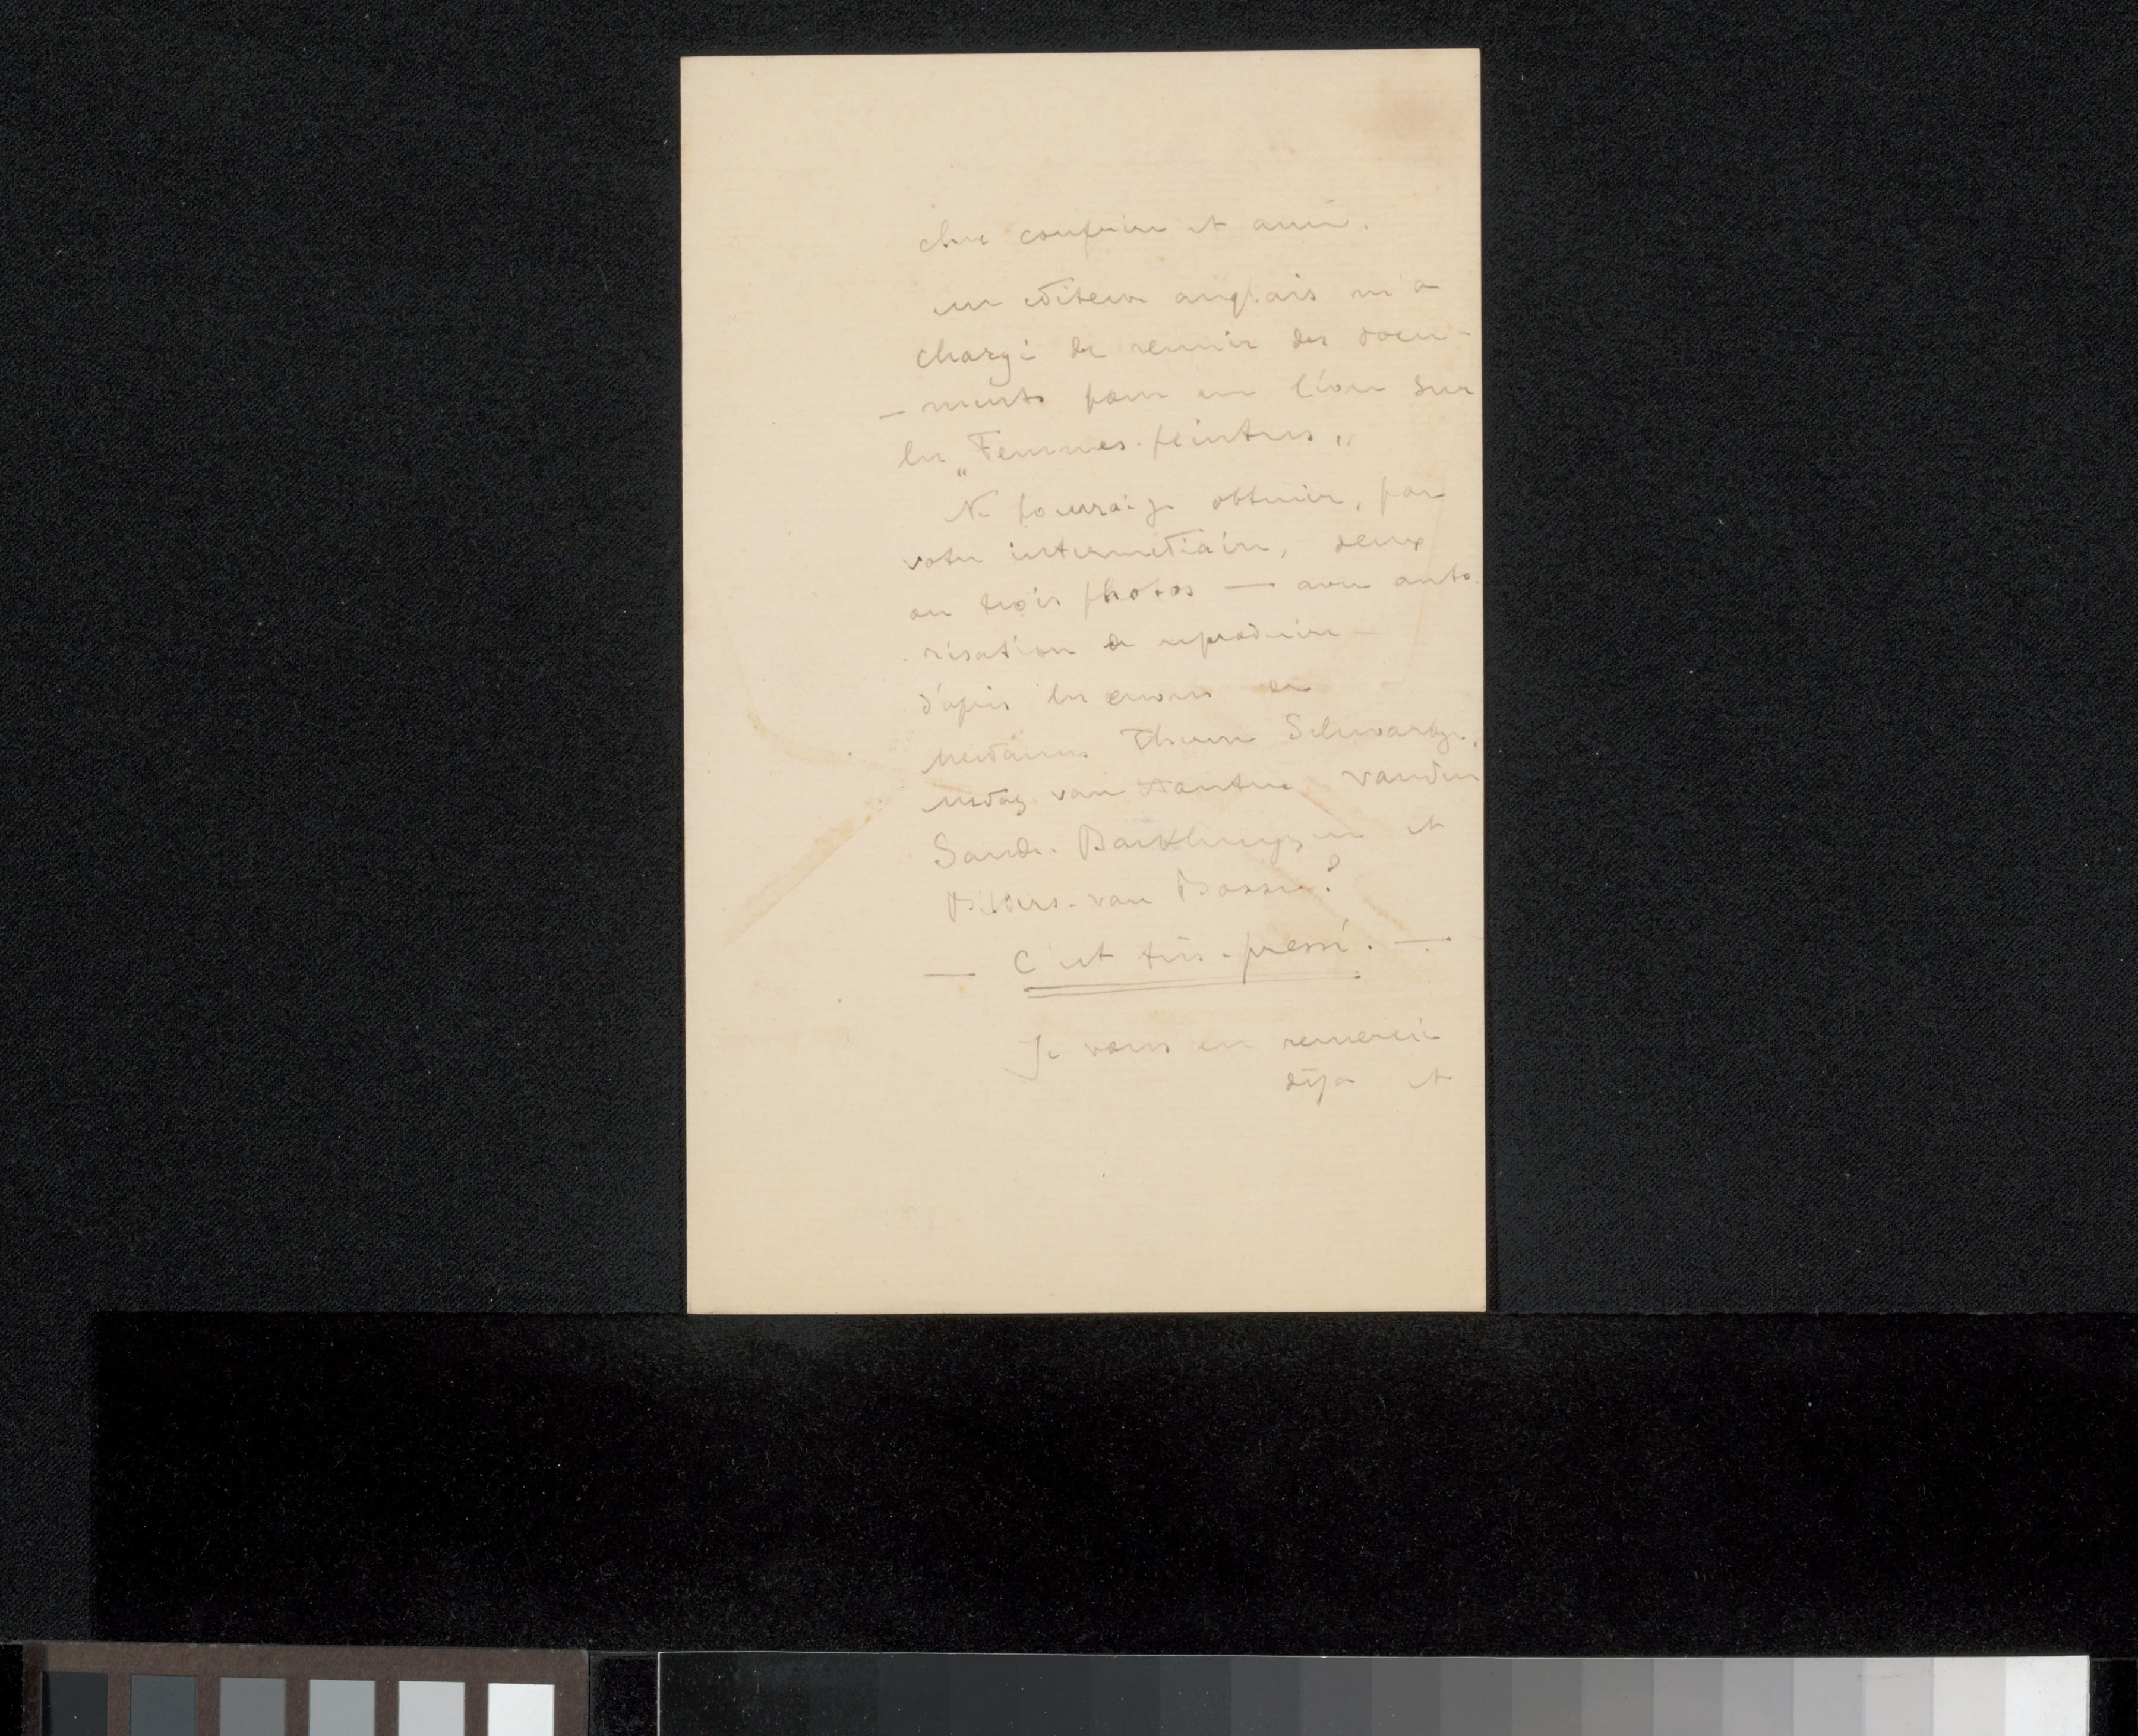 cher confrère et ami.
un editeur anglais m'a
chargé de reunir des docu-
-ments pour un livre sur
les „Femmes-peintres„
Ne pourrai-je obtenir, par
votre intermediaire, deux
ou trois photos — avec auto-
risation de reproduire —
d'après les œuvres de
Mesdames Therese Schwartze,
Mesdag van Houten, vanden
Sande-Backhuyzen et
Bilders-van Bosse?
— C'est très-pressé. —
Je vous en remercie
déja et